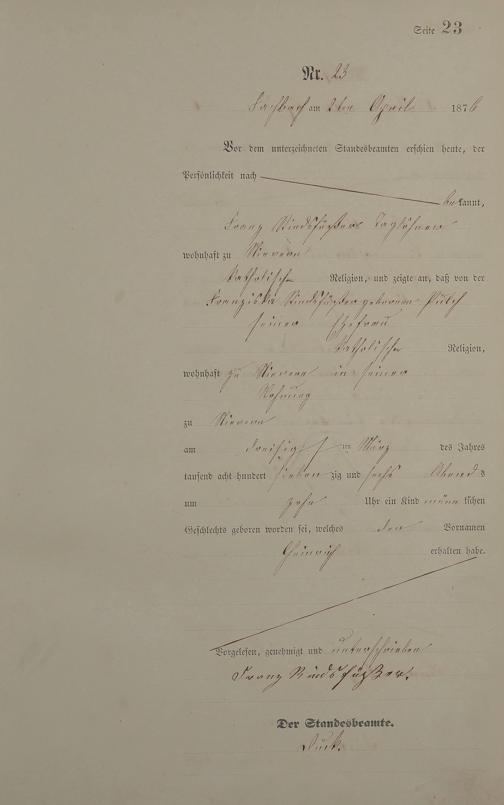 Seite 23
Nr. 23
Fachbach am 2ten April 1876
Vor dem unterzeichneten Standesbeamten erschien heute, der
Persönlichkeit nach
bekannt,
Franz Taglöhner
wohnhaft zu Nievern
katholische Religion, und zeigte an, daß von der
Franziska geborenen
seiner Ehefrau
katholische Religion,
wohnhaft zu Nievern in seiner
Wohnung
zu Nievern
am dreißigsten März des Jahres
tausend acht hundert sieben zig und sechs Abends
um zehn Uhr ein Kind männlichen
Geschlechts geboren worden sei, welches den Vornamen
Heinrich erhalten habe.
Vorgelesen, genehmigt und unterschrieben
Franz
Der Standesbeamte.